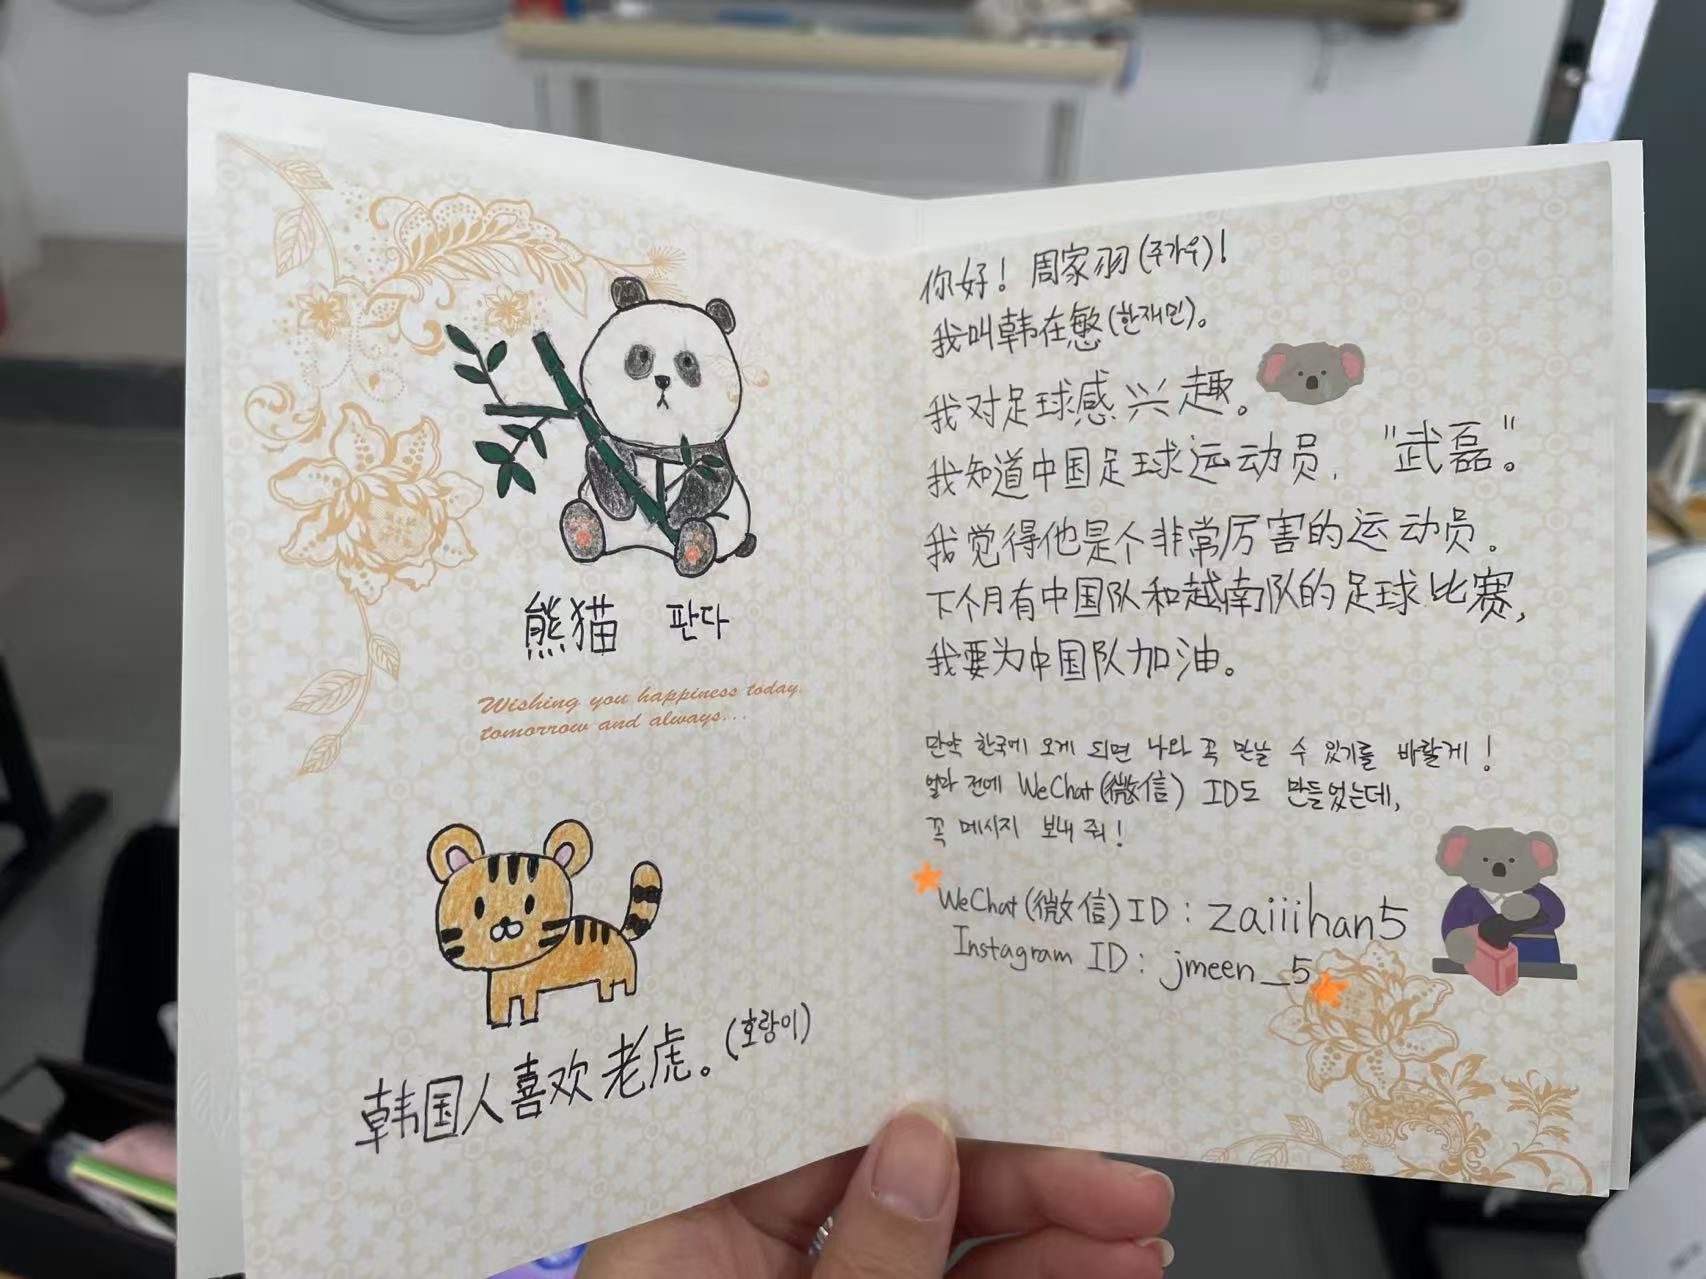 熊猫 판다
Wishing you happiness today,
tomorrow and always...
韩国人喜欢老虎。(호랑이)
你好! 周家羽(주가우)!
我叫韩在慜(한재민)。
我对足球感兴趣。
我知道中国足球运动员, "武磊"。
我觉得他是个非常厉害的运动员。
下个月有中国队和越南队的足球比赛,
我要为中国队加油。
만약 한국에 오게 되면 나와 꼭 만날 수 있기를 바랄게!
얼마 전에 WeChat(微信) ID도 만들었는데,
꼭 메시지 보내 줘!
WeChat(微信) ID: zaiiihan5
Instagram ID: jmeen_5